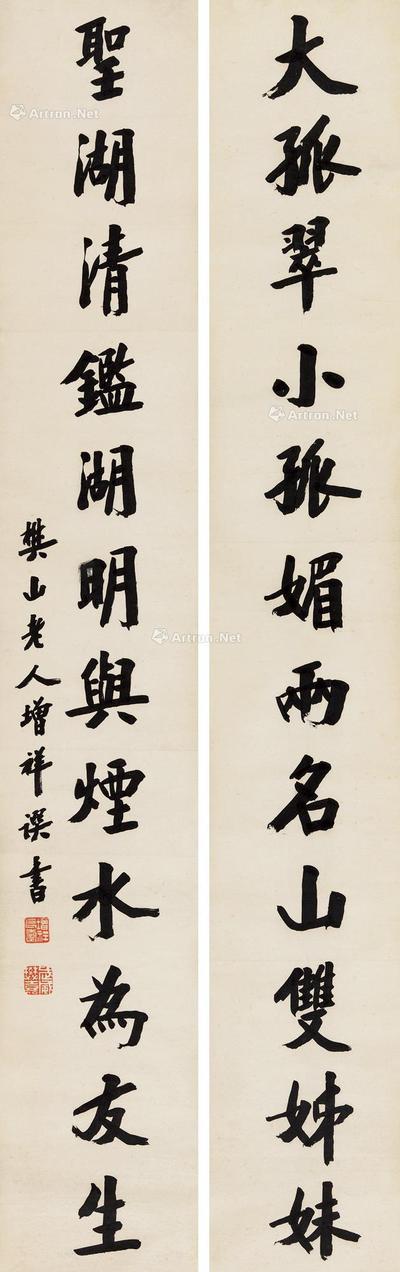 大孤翠小孤媚兩名山雙姊妹
聖湖清鑑湖明與煙水為友生
樊山老人增祥譔書
Artron.Net
Artron.Net
Artron.Net